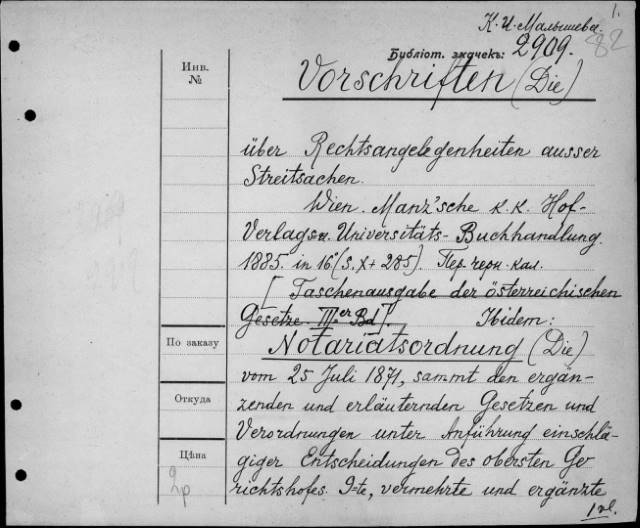 1.
К. И. Малышева.
Библіот. значекъ: 2909.
82
Инв.
№
Vorschriften (Die)
über Rechtsangelegenheiten ausser
Streitsachen.
Wien. Manz'sche k. k. Hof-
Verlags u. Universitäts-Buchhandlung.
1885. in 16° (S. X + 285). Пер. черн. кал.
[Taschenausgabe der österreichischen
Gesetze. IIIer Bd]. Ibidem:
По заказу
Notariatsordnung (Die)
vom 25 Juli 1871, sammt den ergän-
Откуда
zenden und erläuternden Gesetzen und
Verordnungen unter Anführung einschlä-
Цѣна
giger Entscheidungen des obersten Ge
2р
richtshofes. 9-te, vermehrte und ergänzte